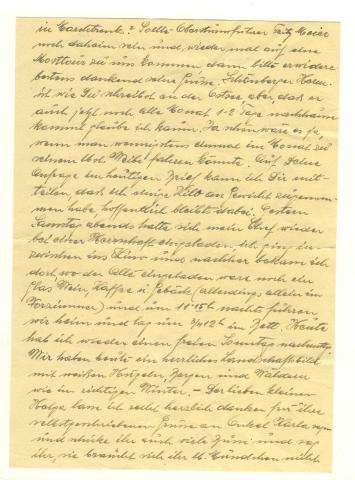 in Marschtrank? Sollte Obersturmführer Fritz Meier
noch daheim sein und wieder mal auf eine
Mosttour zu uns kommen dann bitte erwidere
bestens dankend seine Grüsse. Schönberger Hans
ist wie Du schreibst an der Ostsee aber, dass er
auch jetzt noch alle Monat 1-2 Tage nachhause
kommt glaube ich kaum. Ja schön wäre es ja,
wenn man wenigstens einmal im Monat zu
seinem lb. Weibe fahren könnte. Auf Deine
Anfrage im heutigen Brief kann ich Dir mit-
teilen, dass ich einige Kilo an Gewicht zugenom-
men habe hoffentlich bleibts dabei. Gestern
Samstag abends hatte sich mein Chef wieder
bei einer Herrschaft eingeladen, ich ging in-
zwischen ins Kino und nachher bekam ich
dort wo der Alte eingeladen war noch ein
Glas Wein, Kaffee u. Gebäck (allerdings allein im
Vorzimmer) und um 11.15h nachts fuhren
wir heim und lag um 3/4 12h im Bett. Heute
hab ich wieder einen freien Sonntag nachmittag.
Wir haben heute ein herrliches Landschaftsbild
mit weißen Hügeln, Bergen und Wäldern
wie im richtigen Winter. – Der lieben kleinen
lass ich recht herzlich danken für ihre
selbstgeschriebenen Grüsse an Onkel Karl
und schicke ihr auch viele Bussi und sag
ihr, sie braucht sich ihr lb. Mündchen nicht